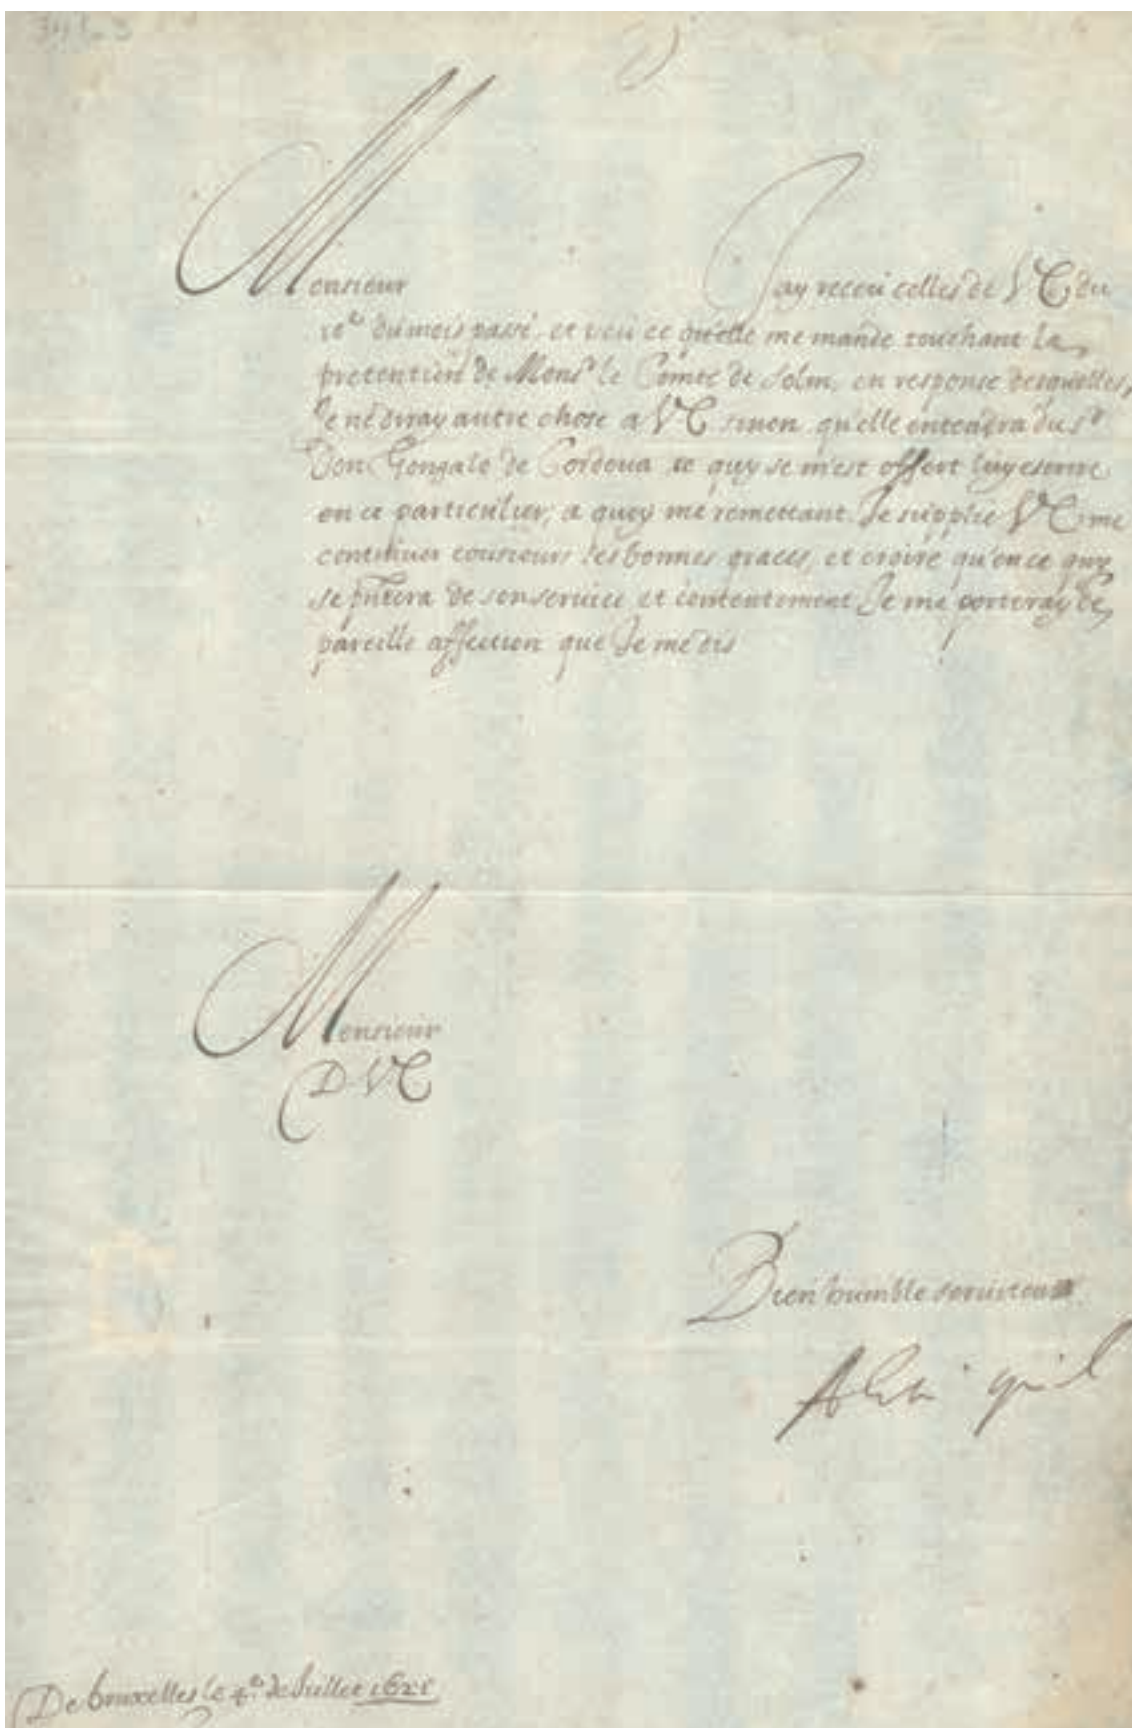 Monsieur Jay receu celles de VE du
du mois passé, et veu ce qu'elle me mande touchant la
pretention de Monsr le Comte de Solm, en response desquelles,
Je ne diray autre chose a VE sinon qu'elle entendra du sr
Don Gonzalo de Cordoua ce quy se m'est offert luy escrire
en ce particulier, a quoy me remettant Je supplie VE me
continuer tousiours ses bonnes graces, et croire qu'en ce quy
se de son service et contentement Je me porteray de
pareille affection que Je me dis
Monsieur
D VE
Bien humble serviteur
De bruxelles le 4e de Juillet 1621